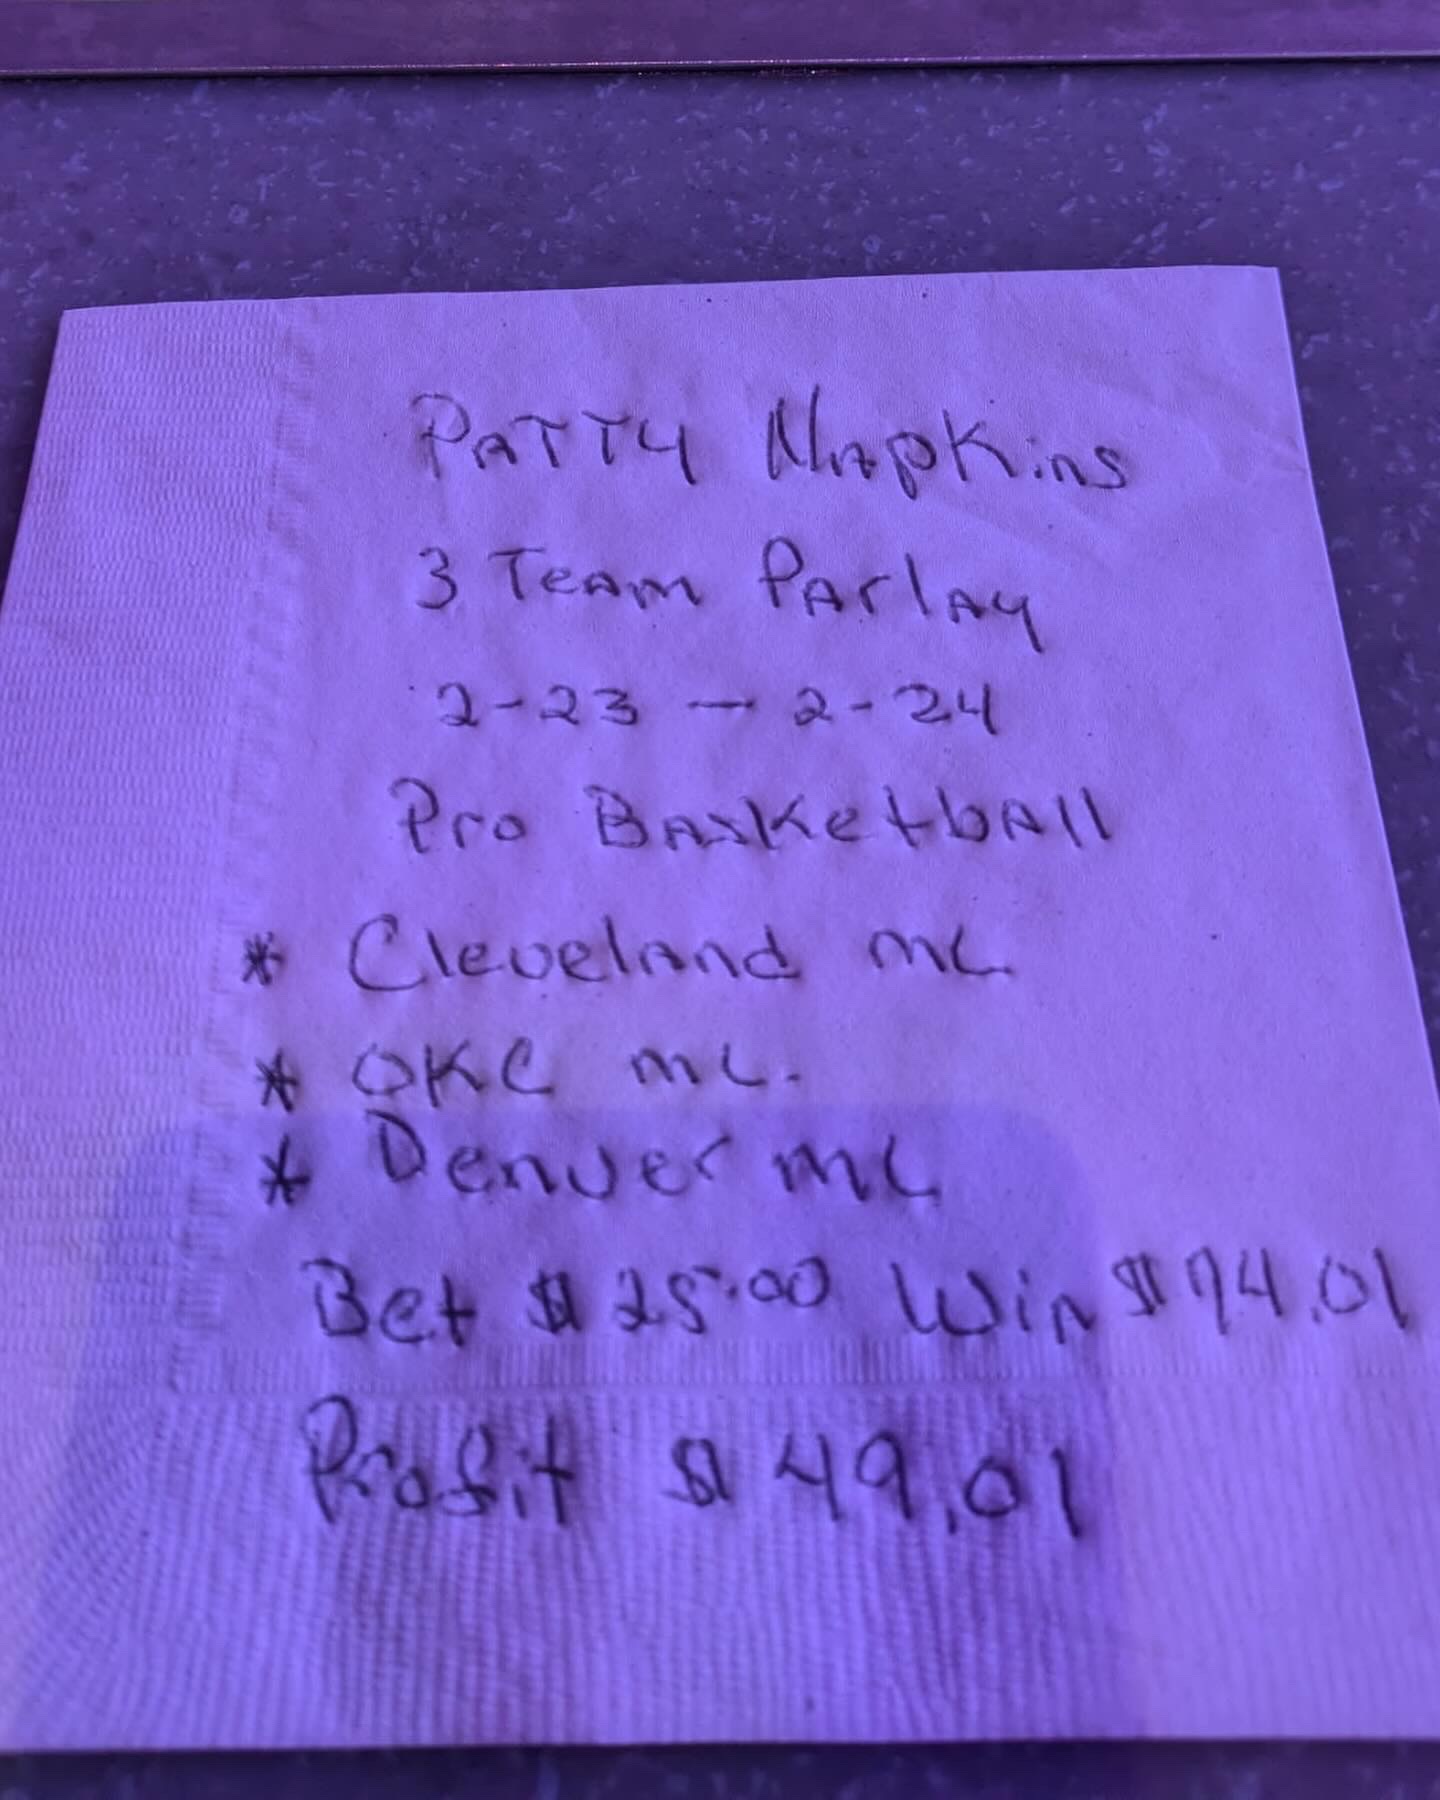 PATTY NApKins
3 TeAm PArlAy
2-23 - 2-24
Pro BAsKetbAll
* Cleveland mL
* OKC mL.
* Denver mL
Bet $25.00 Win $74.01
Profit $49.01